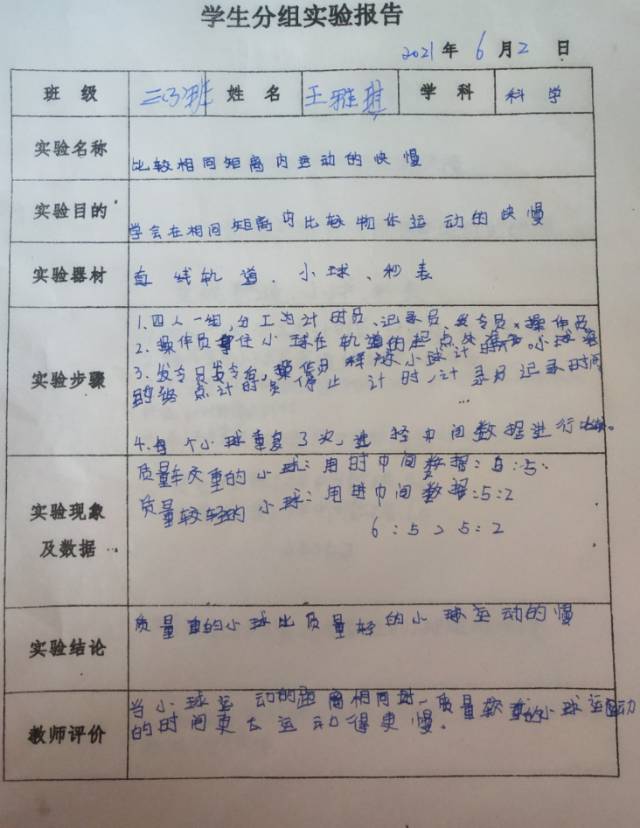 学生分组实验报告
2021年6月2日
班级 三(3)班 姓名 王雅琪 学科 科学
实验名称 比较相同距离内运动的快慢
实验目的 学会在相同距离内比较物体运动的快慢
实验器材 直线轨道、小球、秒表
实验步骤
1.四人一组,分工为计时员、记录员、发令员、操作员
2.操作员拿住小球在轨道的起点处准备。小球
3.发令员发令后,操作员释放小球计时
的终点计时员停止计时,计录员记录时间
...
4.每个小球重复3次,选择中间数据进行比较。
实验现象及数据
质量较重的小球:用时中间数据:6:5
质量较轻的小球:用进中间数据:5:2
6:5>5:2
实验结论 质量重的小球比质量轻的小球运动的慢
教师评价
当小球运动的距离相同时,质量较重的小球运动
的时间更长运动得更慢.